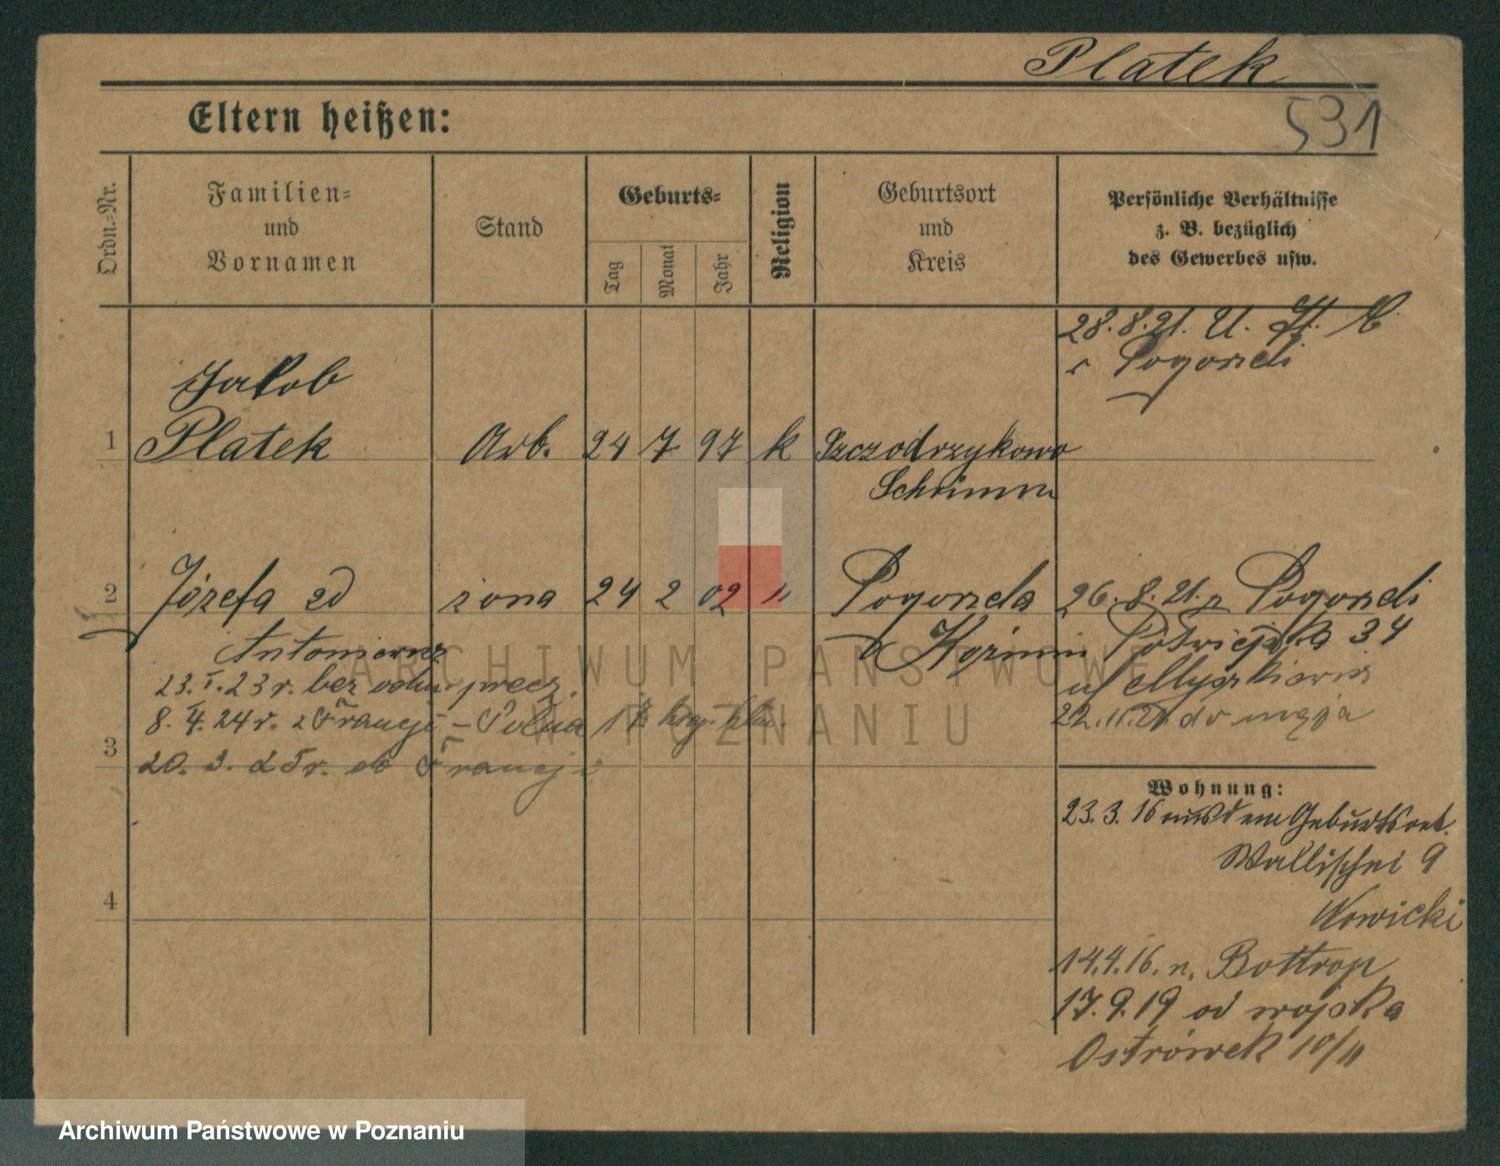 Platek
531
Eltern heißen:
Ordn.-Nr.
Familien-
und
Vornamen
Stand
Geburts-
Tag
Monat
Jahr
Religion
Geburtsort
und
Kreis
Persönliche Verhältnisse
z. B. bezüglich
des Gewerbes usw.
28.8.21. U. St.
z Pogorzeli
1
Jakob
Platek
Arb.
24
7
97
k
Szczodrzykowo
Schrimm
2
Józefa zd
żona
24
2
02
"
Pogorzela
26.8.21. z Pogorzeli
Antoniewicz
Kozmin
34
23.I.23 r. bez
u/
8.4.24 r. z Francji – Polna
22.11.21 do męża
3
20.3.25 r. do Francji
4
Wohnung:
23.3.16 aus dem Geburtsort.
Wallischei 9
Nowicki
14.4.16. n. Bottrop
17.9.19 od wojska
Ostrówek 10/11
ARCHIWUM PAŃSTWOWE
W POZNANIU
Archiwum Państwowe w Poznaniu